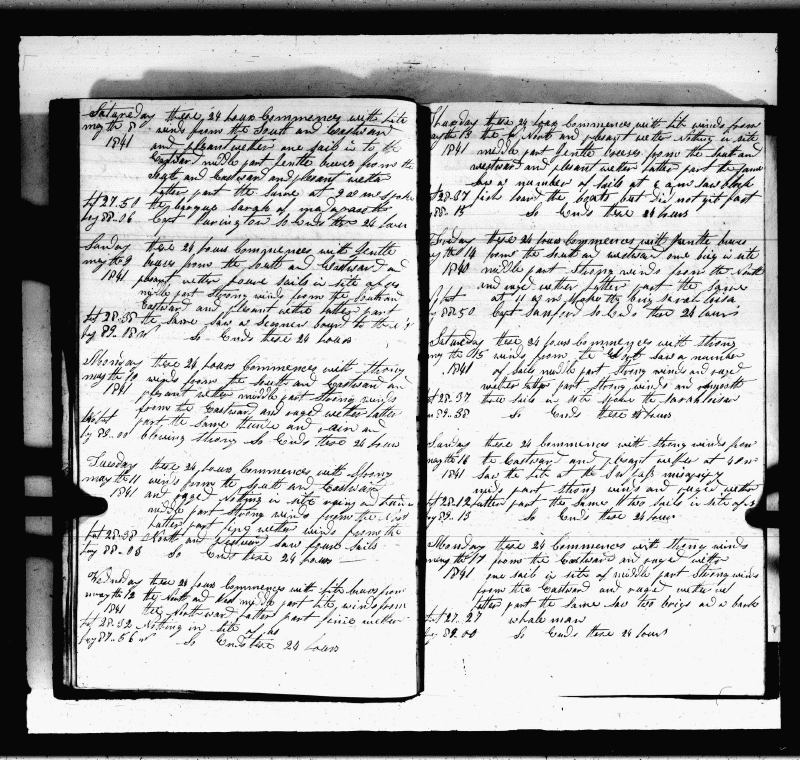 Saturday these 24 hours Commences with lite
may the 8 winds from the South and Eastward
1841 and plesant wether one sail is to the
Eastward middle part jentle breses from the
South and Eastward and plesant wether
latter part the same at 9 am spoke
lat 27-50 the
log 88-06 Capt So Ends these 24 hours
Sunday these 24 hours Commences with jentle
may the 9 breses from the South and Eastward and
1841 plesant wether foure sails in site of us
midle part strong winds from the South an
Eastward and plesant wether latter part
lat 28-38 the same saw a bound to the
log 89-18 So Ends these 24 hours
Monday these 24 hours Commences with strong
may the 10 winds from the South and Eastward an
1841 plesant wether middle part strong winds
from the Eastward and raged wether latter
part the same and rain and
log 89-00 blowing strong So Ends these 24 hours
Tuesday these 24 hours Commences with strong
may the 11 winds from the South and Eastward
1841 and raged Nothing in site
middle part strong winds from the
latter part wether winds from the
lat 28-38 North and Westward saw foure sails
log 88-03 So Ends these 24 hours
Wensday these 24 hours Commences with lite breses from
may the 12 the North and middle part lite winds from
1841 the Northward latter part wether
lat 28-32 Nothing in site of us
log 87-56 So Ends these 24 hours
Thursday these 24 hours Commences with lite winds from
may the 13 the North and plesant wether Nothing in site
1841 middle part jentle breses from the South an
westward and plesant wether latter part the same
saw a number of sails at 6 a m saw black
lat 28-37 fish lowered the boats but did not git fast
log 88-13 So Ends these 24 hours
Friday these 24 hours Commences with jentle breses
may the 14 from the South an westward one brig in site
1840 middle part strong winds from the North
and rage wether latter part the same
at 11 a m spoke the brig Sarah loisa
log 88-50 Capt Sanford So Ends these 24 hours
Saturday these 24 hours Commences with strong
may the 15 winds from the saw a number
1841 of sails middle part strong winds and raged
wether latter part strong winds and
lat 28-37 three sails in site spoke the Sarah loisa
89-38 So Ends these 24 hours
Sunday these 24 Commences with strong winds from
may the 16 the Eastward and plesant wether at 4 P M
1841 saw the lite at the
midle part strong winds and raged wether
lat 28-12 latter part the same two sails in site of us
log 89-13 So Ends these 24 hours
Monday these 24 Commences with strong winds
may the 17 from the Eastward an raged wether
1841 one sail in site of middle part strong winds
from the Eastward and raged wether
latter part the same saw two brigs and a bark
lat 27-27 whale man
log 89-00 So Ends these 24 hours